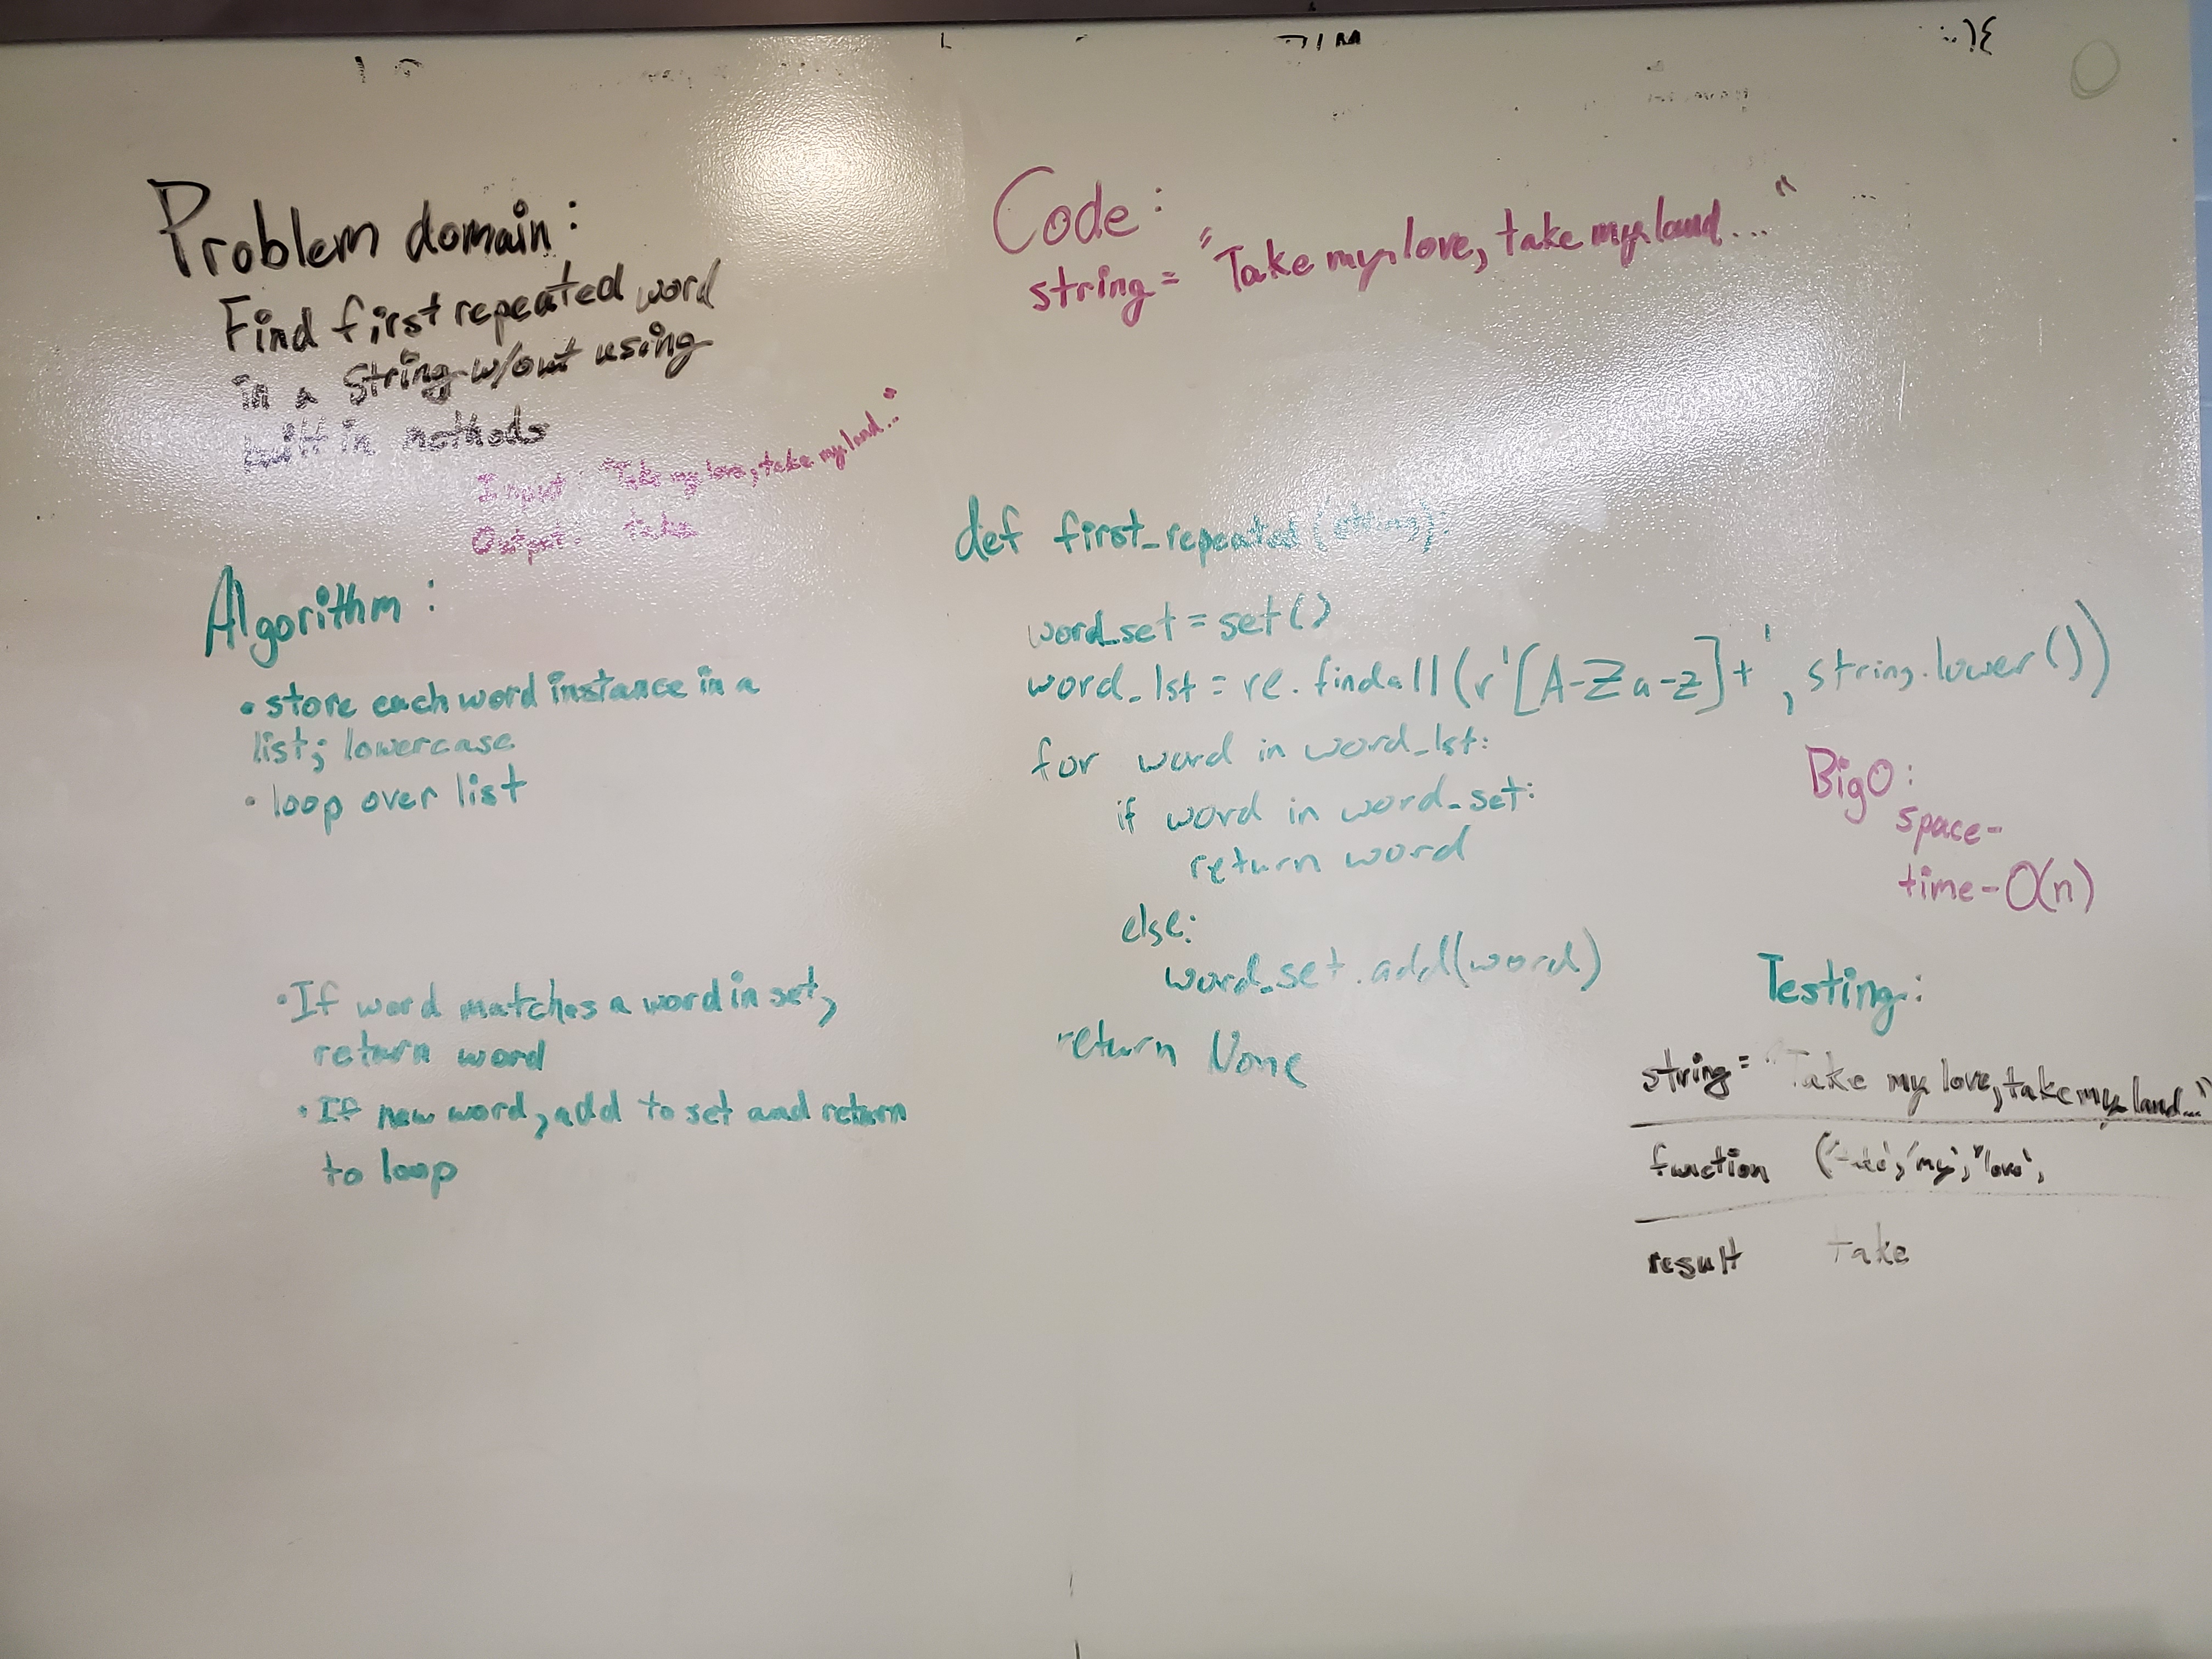 Problem domain:
Find first repeated word
in a string w/out using
built in methods
Input: "Take my love, take my land..."
Output: take
Algorithm:
• store each word instance in a
list; lowercase
• loop over list
• If word matches a word in set,
return word
• If new word, add to set and return
to loop
Code:
string = "Take my love, take my land..."
def first_repeated(string):
word_set = set()
word_lst = re.findall(r'[A-Za-z]+', string.lower())
for word in word_lst:
if word in word_set:
return word
else:
word_set.add(word)
return None
Big O:
space-
time- O(n)
Testing:
string = "Take my love, take my land..."
function ('take', 'my', 'love',
result take